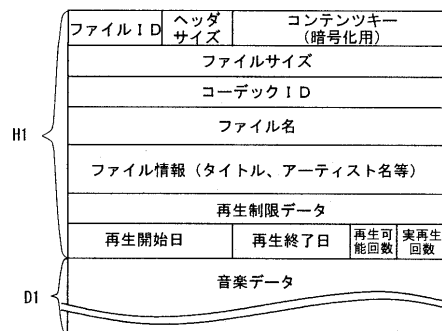 ファイルＩＤ
ヘッダ
サイズ
コンテンツキー
(暗号化用)
ファイルサイズ
コーデックＩＤ
H1
ファイル名
ファイル情報（タイトル、アーティスト名等）
再生制限データ
再生開始日
再生終了日
再生可
能回数
実再生
回数
D1
音楽データ